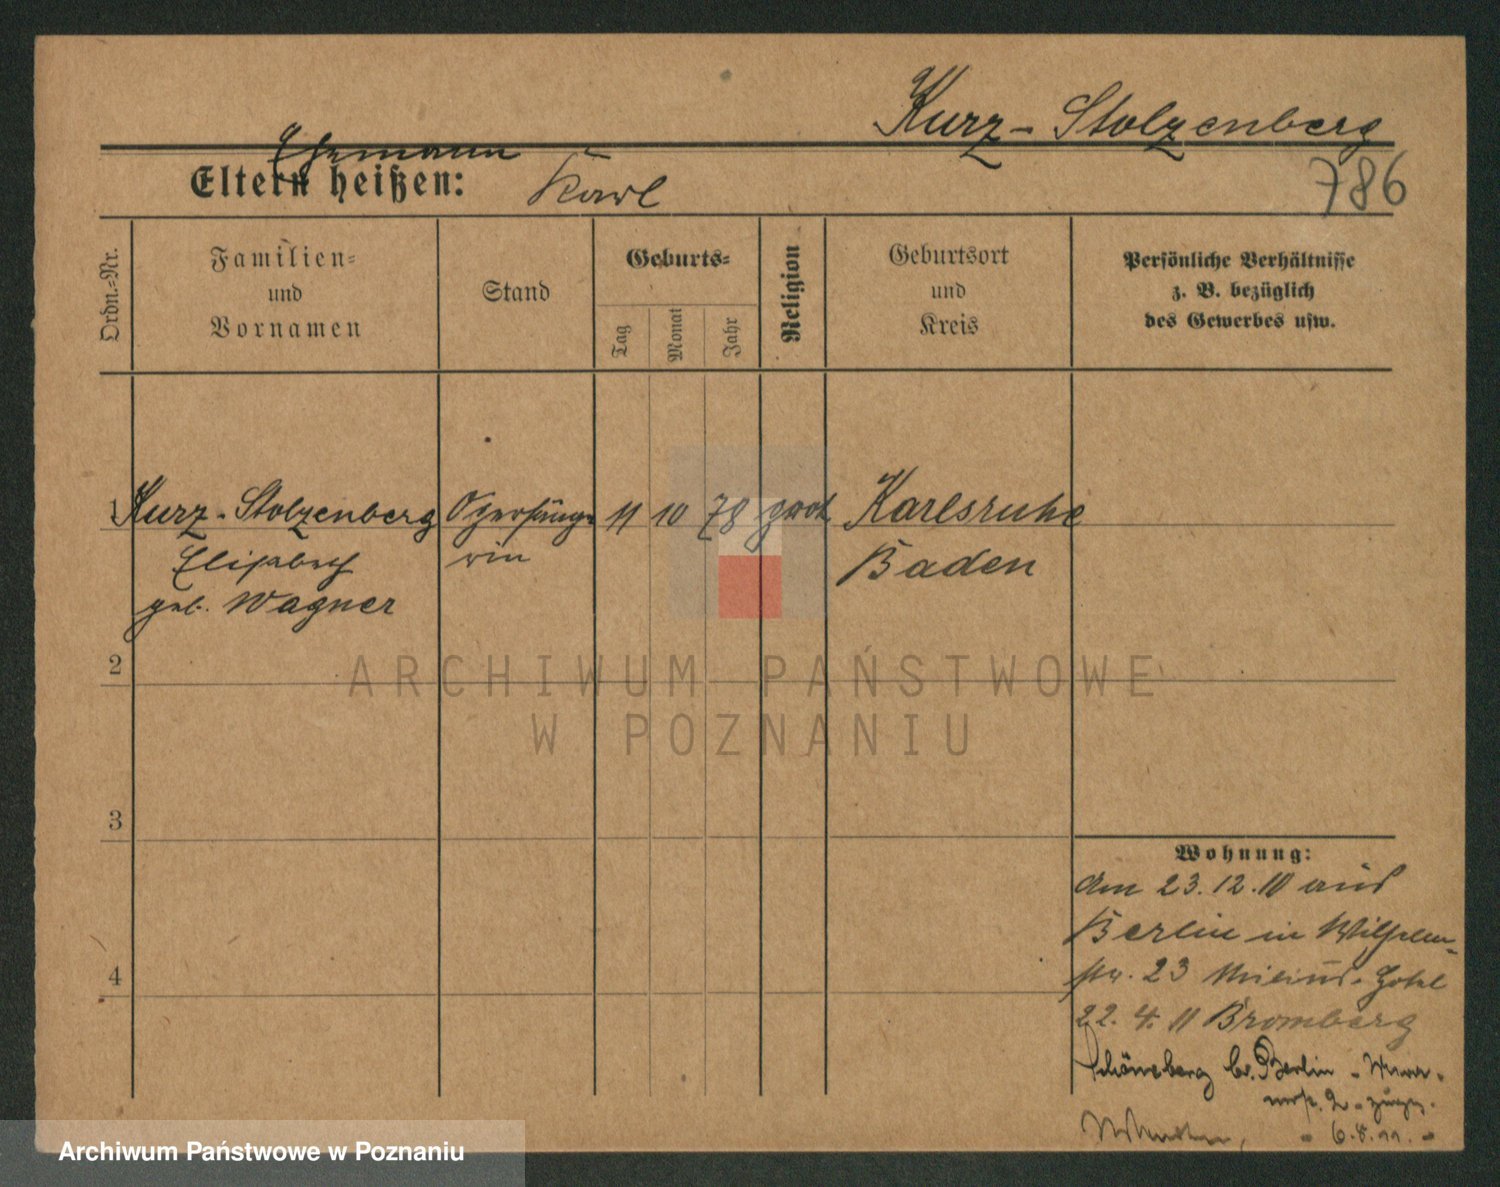 Kurz-Stolzenberg
Ehemann
Eltern heißen: Karl
786
Ordn.-Nr.
Familien-
und
Vornamen
Stand
Geburts-
Tag
Monat
Jahr
Religion
Geburtsort
und
Kreis
Persönliche Verhältnisse
z. B. bezüglich
des Gewerbes usw.
1 Kurz-Stolzenberg Opernsänge- 11 10 78 Karlsruhe
Elisabeth rin Baden
geb. Wagner
2
ARCHIWUM PAŃSTWOWE
W POZNANIU
3
Wohnung:
Am 23.12.10 aus
Berlin in Wilhelm-
str. 23 Mylius-Hotel
22. 4. 11 Bromberg
4
Schöneberg b. Berlin -
2
6.8.11.
Archiwum Państwowe w Poznaniu